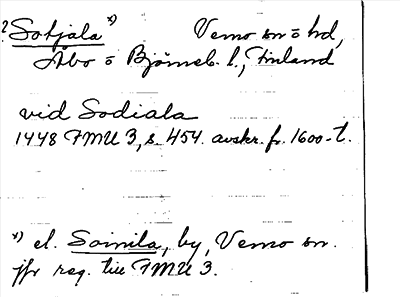 ? Sotjala x) Vemo sn o hd,
Åbo o Björneb. l., Finland
vid Sodiala
1448 FMU 3, s. 454. avskr. fr. 1600-t.
x) el. Soinila, by, Vemo sn.
jfr reg. till FMU 3.